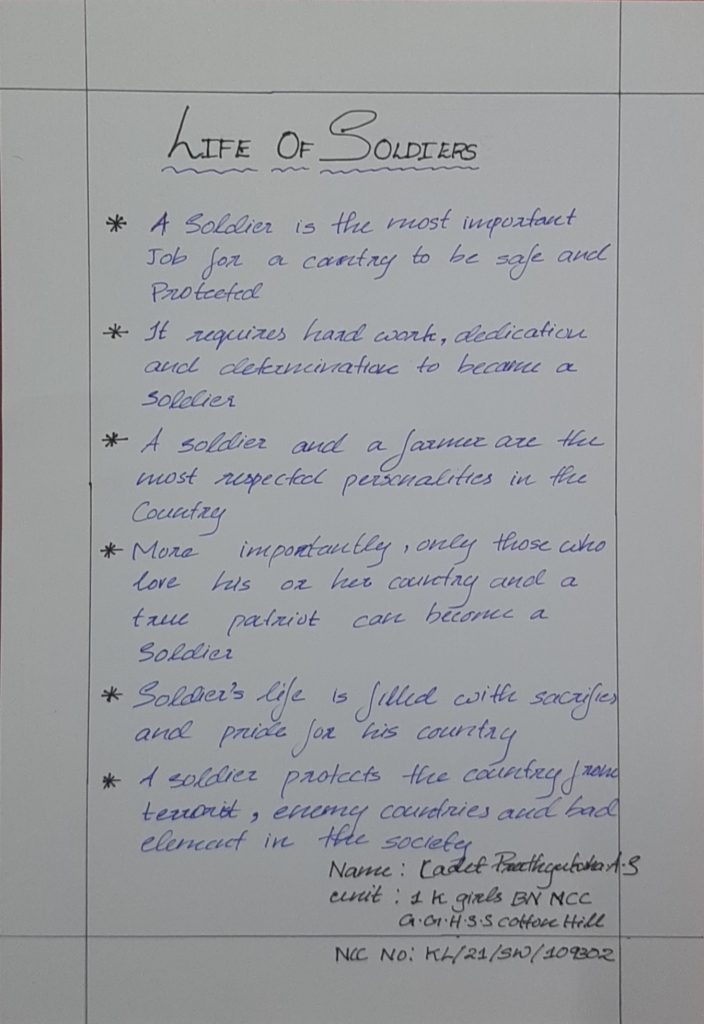 LIFE OF SOLDIERS
* A Soldier is the most important
Job for a country to be safe and
Protected
* It requires hard work, dedication
and determination to become a
soldier
* A soldier and a farmer are the
most respected personalities in the
Country
* More importantly, only those who
love his or her country and a
true patriot can become a
Soldier
* Soldier's life is filled with sacrifies
and pride for his country
* A soldier protects the country from
terrorist, enemy countries and bad
element in the society
Name : Cadet A.S
unit : 1 K girls BN NCC
G.G.H.S.S Cotton Hill
NCC No: KL/21/SW/109302